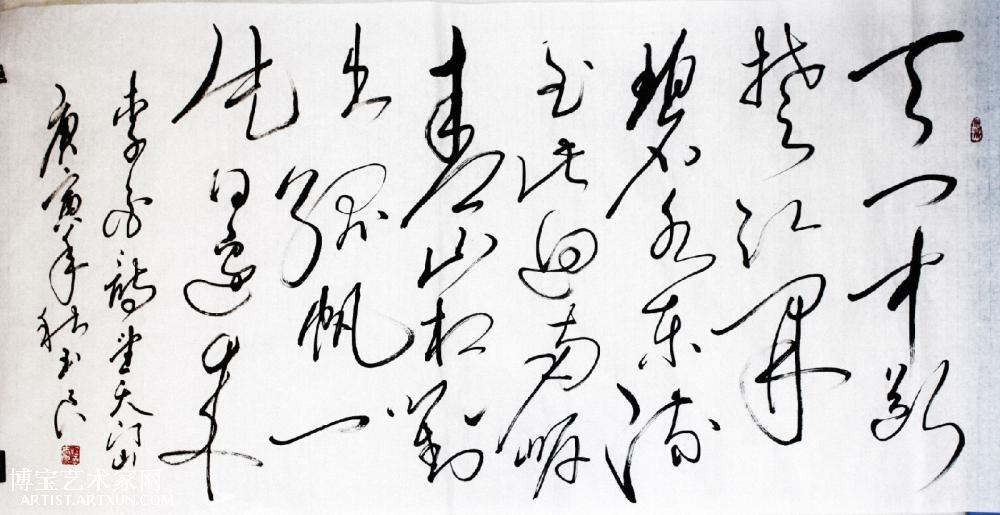 天门中断
楚江开
碧水东流
至此迴两岸
青山相對
出孤帆一
片日邊来
李白詩望天门山
庚寅年秋
博宝艺术家网
ARTIST.ARTXUN.COM